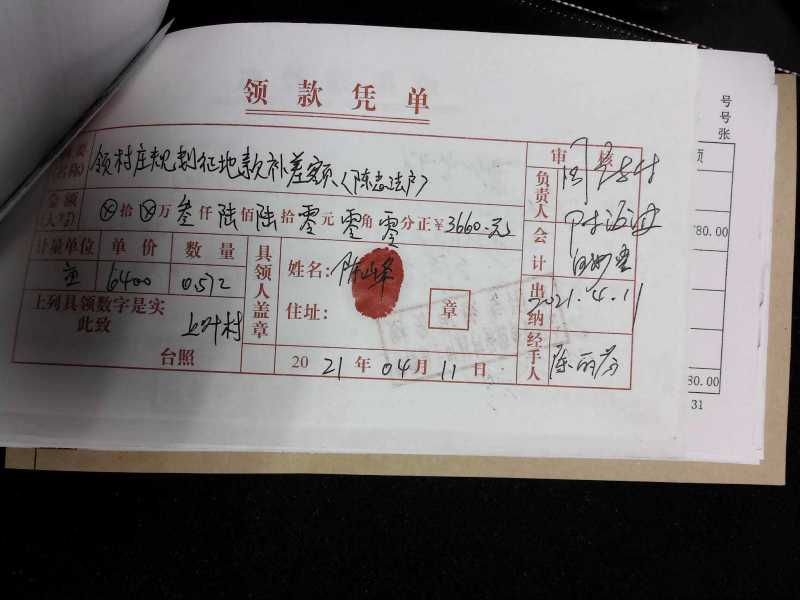 领款凭单
领村庄规划征地款补差额(陈志法户)
审核
金额
(大写) ⊗拾⊗万叁仟陆佰陆拾零元零角零分正¥3660.元
负责人
计量单位 单价 数量
亩 6400 0.572
具领人盖章
姓名:陈
住址:
章
会计
上列具领数字是实
此致
上叶村
台照
2021年04月11日
出纳
2021.4.11
经手人
陈丽芬
号
号
张
780.00
80.00
31